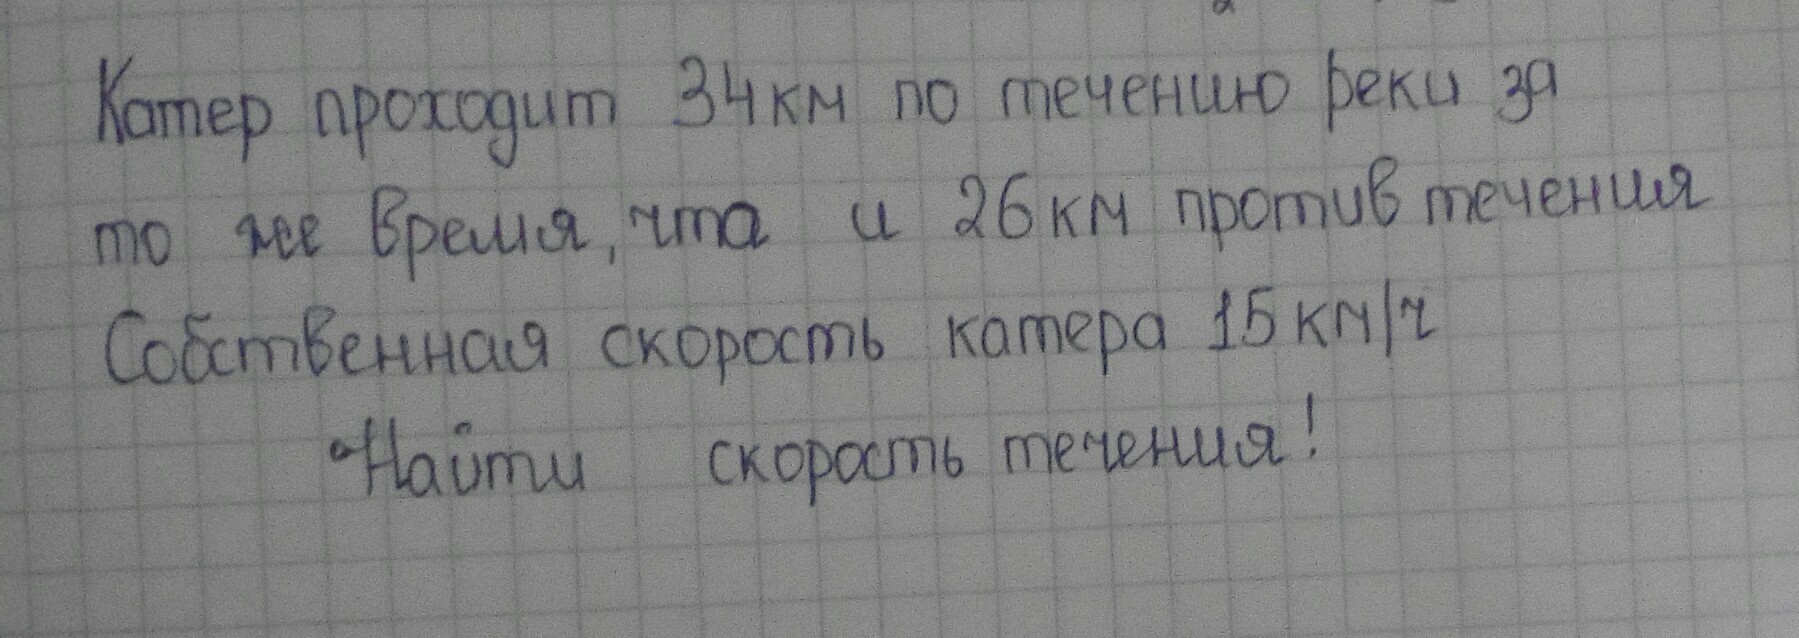 Катер проходит 34км по течению реки за
то же время, что и 26км против течения
Собственная скорость катера 15км/ч
Найти скорость течения!